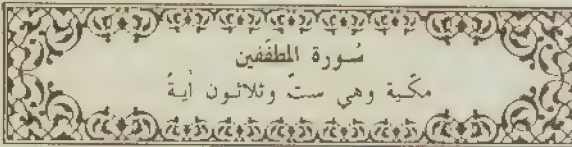 سُورة المطفّفين
مكّية وهي ستّ وثلاثون أيةً